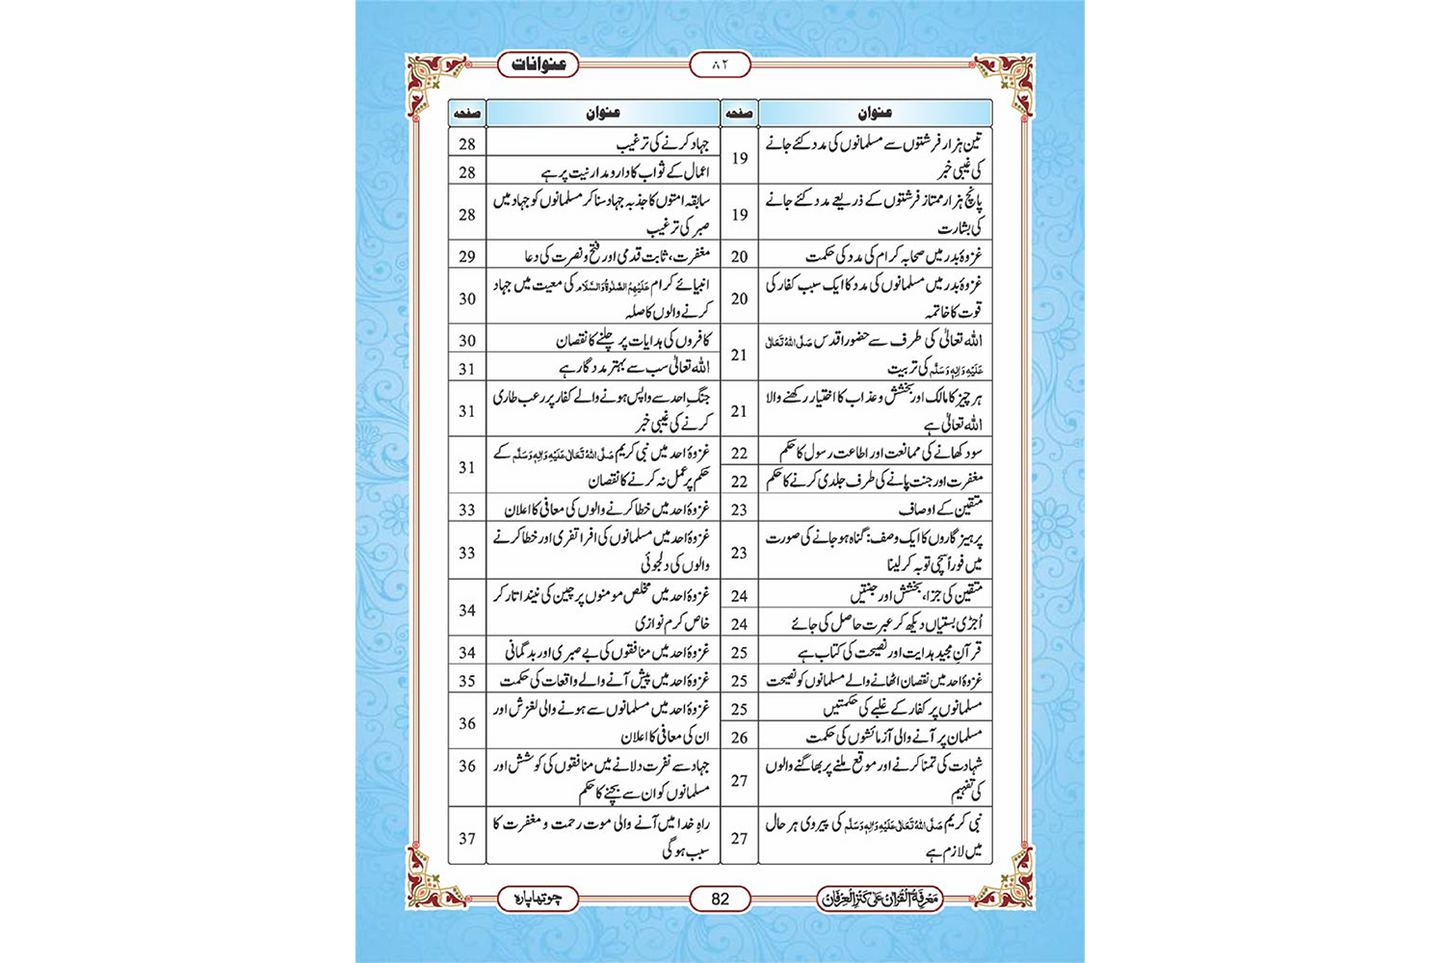 عنوانات
۸۲
عنوان
صفحہ
تین ہزار فرشتوں سے مسلمانوں کی مدد کئے جانے
کی غیبی خبر
19
پانچ ہزار ممتاز فرشتوں کے ذریعے مدد کئے جانے
کی بشارت
19
غزوۂ بدر میں صحابہ کرام کی مدد کی حکمت
20
غزوۂ بدر میں مسلمانوں کی مدد کا ایک سبب کفار کی
قوت کا خاتمہ
20
اللہ تعالیٰ کی طرف سے حضور اقدس صَلَّی اللہُ تَعَالٰی
عَلَیْہِ وَاٰلِہٖ وَسَلَّم کی تربیت
21
ہر چیز کا مالک اور بخشش و عذاب کا اختیار رکھنے والا
اللہ تعالیٰ ہے
21
سود کھانے کی ممانعت اور اطاعت رسول کا حکم
22
مغفرت اور جنت پانے کی طرف جلدی کرنے کا حکم
22
متقین کے اوصاف
23
پرہیز گاروں کا ایک وصف: گناہ ہو جانے کی صورت
میں فوراً سچی توبہ کر لینا
23
متقین کی جزا، بخشش اور جنتیں
24
اُجڑی بستیاں دیکھ کر عبرت حاصل کی جائے
24
قرآنِ مجید ہدایت اور نصیحت کی کتاب ہے
25
غزوۂ احد میں نقصان اٹھانے والے مسلمانوں کو نصیحت
25
مسلمانوں پر کفار کے غلبے کی حکمتیں
25
مسلمان پر آنے والی آزمائشوں کی حکمت
26
شہادت کی تمنا کرنے اور موقع ملنے پر بھاگنے والوں
کی تفہیم
27
نبی کریم صَلَّی اللہُ تَعَالٰی عَلَیْہِ وَاٰلِہٖ وَسَلَّم کی پیروی ہر حال
میں لازم ہے
27
عنوان
صفحہ
جہاد کرنے کی ترغیب
28
اعمال کے ثواب کا دارومدار نیت پر ہے
28
سابقہ امتوں کا جذبہ جہاد سنا کر مسلمانوں کو جہاد میں
صبر کی ترغیب
28
مغفرت، ثابت قدمی اور فتح و نصرت کی دعا
29
انبیائے کرام عَلَیْہِمُ الصَّلٰوۃُ وَالسَّلَام کی معیت میں جہاد
کرنے والوں کا صلہ
30
کافروں کی ہدایات پر چلنے کا نقصان
30
اللہ تعالیٰ سب سے بہتر مددگار ہے
31
جنگِ احد سے واپس ہونے والے کفار پر رعب طاری
کرنے کی غیبی خبر
31
غزوۂ احد میں نبی کریم صَلَّی اللہُ تَعَالٰی عَلَیْہِ وَاٰلِہٖ وَسَلَّم کے
حکم پر عمل نہ کرنے کا نقصان
31
غزوۂ احد میں خطا کرنے والوں کی معافی کا اعلان
33
غزوۂ احد میں مسلمانوں کی افراتفری اور خطا کرنے
والوں کی دلجوئی
33
غزوۂ احد میں مخلص مومنوں پر چین کی نیند اتار کر
خاص کرم نوازی
34
غزوۂ احد میں منافقوں کی بے صبری اور بدگمانی
34
غزوۂ احد میں پیش آنے والے واقعات کی حکمت
35
غزوۂ احد میں مسلمانوں سے ہونے والی لغزش اور
ان کی معافی کا اعلان
36
جہاد سے نفرت دلانے میں منافقوں کی کوشش اور
مسلمانوں کو ان سے بچنے کا حکم
36
راہِ خدا میں آنے والی موت رحمت و مغفرت کا
سبب ہوگی
37
مَعْرِفَۃُ الْقُرْاٰن عَلٰی کَنْزُ الْعِرْفَان
82
چوتھا پارہ